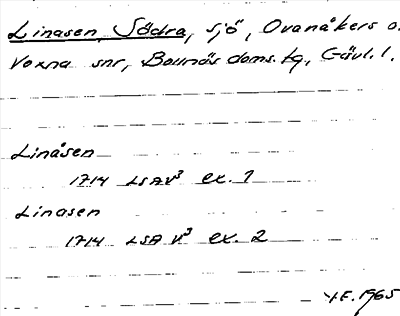 Linasen, Södra, sjö, Ovanåkers o.
Voxna snr, Bollnäs doms. tg., Gävl. l.
Linåsen
1714 LSA V³ ex. 1
Linasen
1714 LSA V³ ex. 2
Y.E. 1965